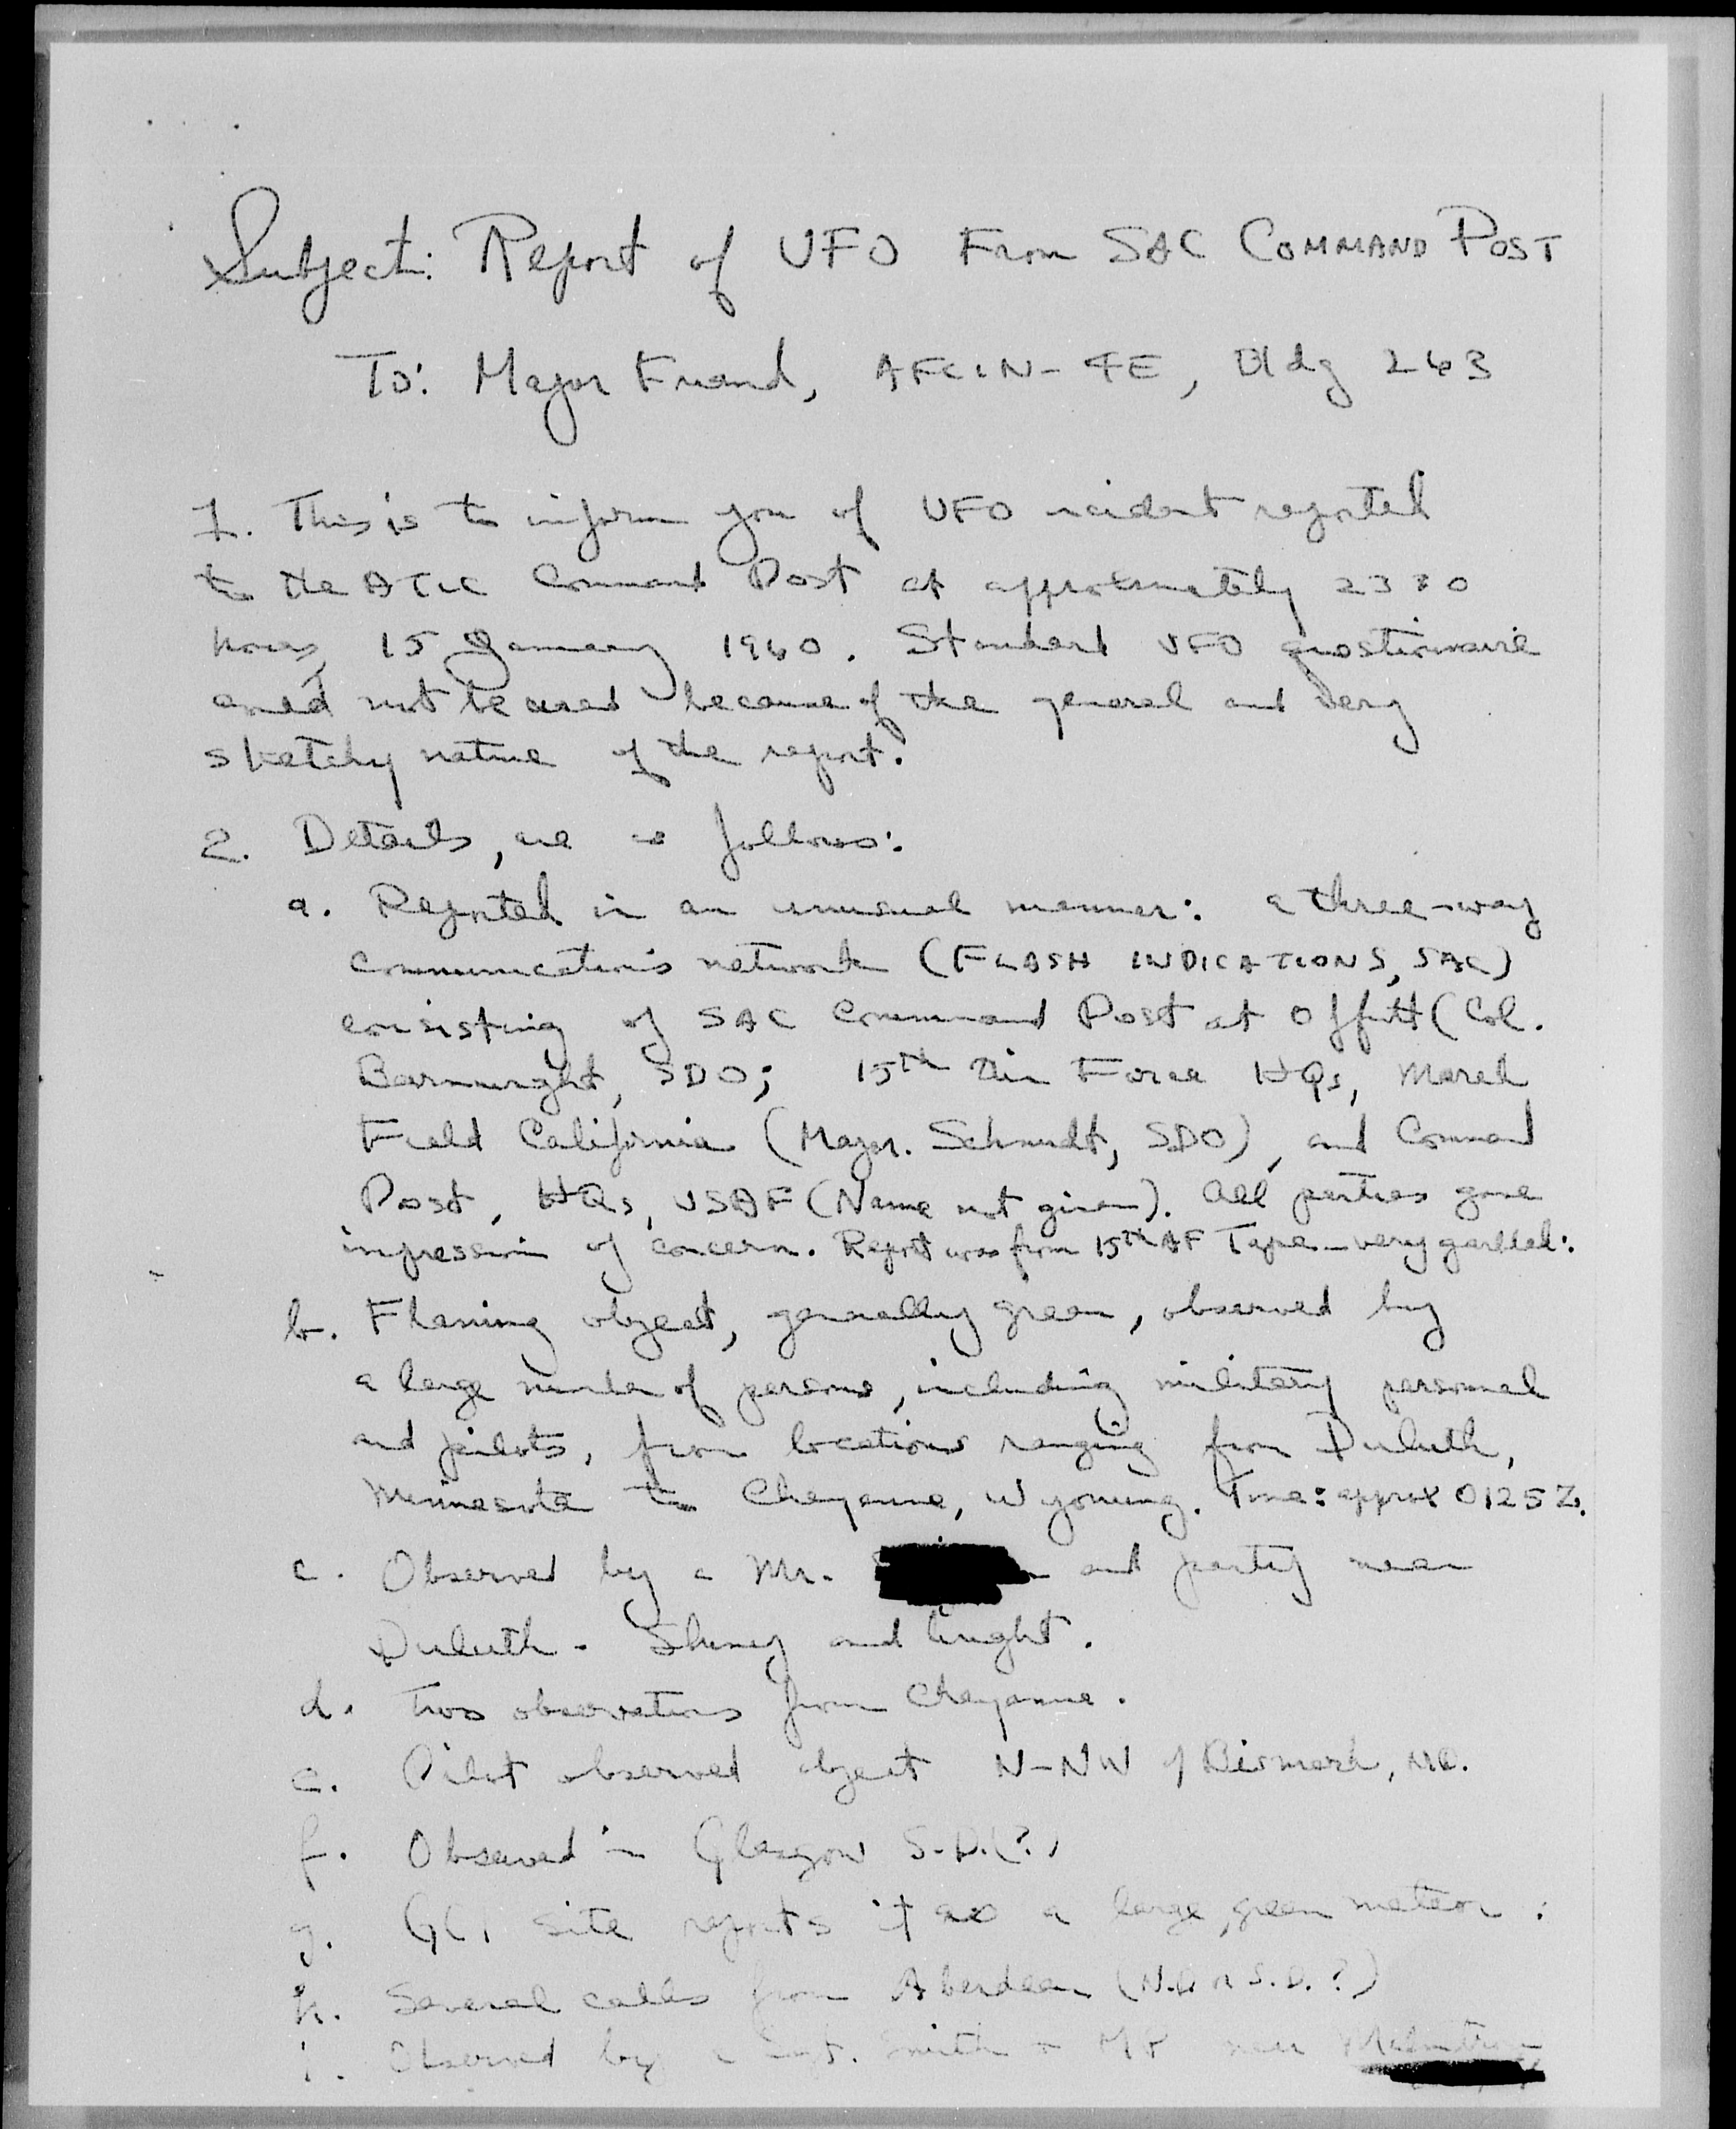 Subject: Report of UFO From SAC COMMAND POST
To: Major Friend, AFCIN-4E, Bldg 263
1. This is to inform you of UFO incident reported
to the ATIC Command Post at approximately 2330
hours, 15 January 1960. Standard UFO questionnaire
could not be used because of the general and very
sketchy nature of the report.
2. Details, are as follows:
a. Reported in an unusual manner: a three-way
communications network (FLASH INDICATIONS, SAC)
consisting of SAC Command Post at Offutt (Col.
SDO; 15th Air Force HQs, March
Field California (Major. Schmidt, SDO), and Command
Post, HQs, USAF (Name not given). All parties gave
impression of concern. Report was from 15th AF Tape - very garbled:
b. Flaming object, generally green, observed by
a large number of persons, including military personnel
and pilots, from locations ranging from Duluth,
Minnesota to Cheyenne, Wyoming. Time: approx 0125Z.
c. Observed by a Mr. and party near
Duluth. Shiny and bright.
d. Two observations from Cheyenne.
e. Pilot observed object N-NW of Bismark, ND.
f. Observed in Glasgow S.D.(?)
g. GCI site reports it as a large, green meteor.
h. Several calls from Aberdeen (N.D. or S.D.?)
i. Observed by a Smith near